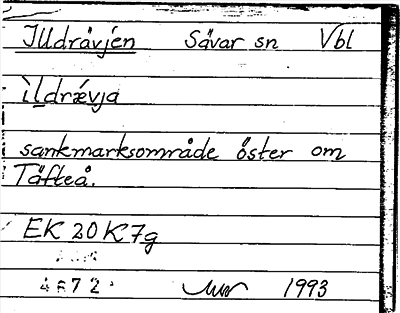 Illdråvjen Sävar sn Vbl
ìl̲drǽvja
sankmarksområde öster om
Täfteå.
EK 20K7g
4672 1993